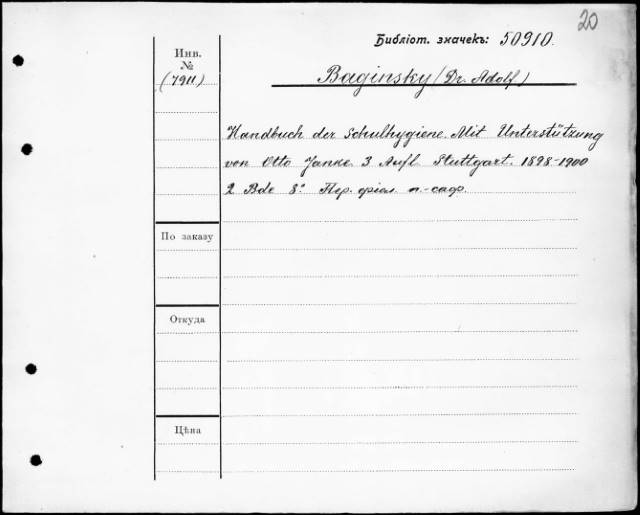 20
Библіот. значекъ: 50910.
Инв.
№
(7911)
Baginsky (Dr. Adolf)
Handbuch der Schulhygiene. Mit Unterstützung
von Otto Janke. 3 Aufl. Stuttgart. 1898-1900
2 Bde 8° Пер. фіол. п.-саф.
По заказу
Откуда
Цѣна